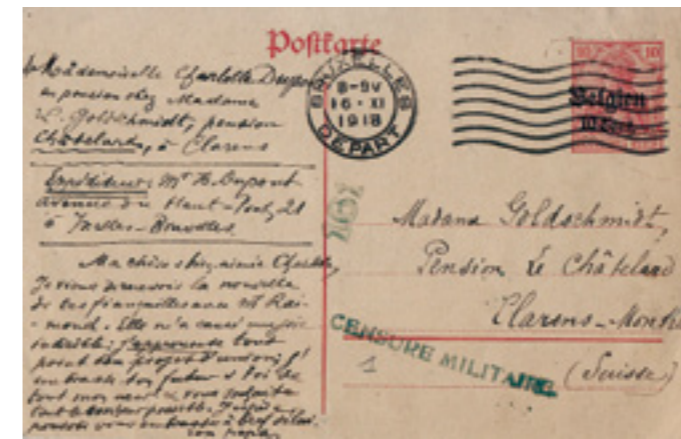 Postkarte
BRUXELLES
8-9V
16·XI
1918
DEPART
10 10
Belgien
10 Cent.
à Mademoiselle Charlotte Dupont
en pension chez Madame
L. Goldschmidt, pension
Châtelard, à Clarens
Expéditeur: Mr H. Dupont
avenue du Haut-Pont, 21
à Ixelles-Bruxelles
Ma chère bien aimée Charlotte,
Je viens de recevoir la nouvelle
de tes fiançailles avec Mr Rai-
mond. Elle m'a causé une joie
indicible; j'approuve
point ton projet d'union; j'
embrasse ton futur & toi de
tout mon cœur & vous souhaite
tout le bonheur possible.
pouvoir vous embrasser à bref délai.
ton papa
Madame Goldschmidt,
Pension Le Châtelard
Clarens-Montr
(Suisse)
CENSURE MILITAIRE
1